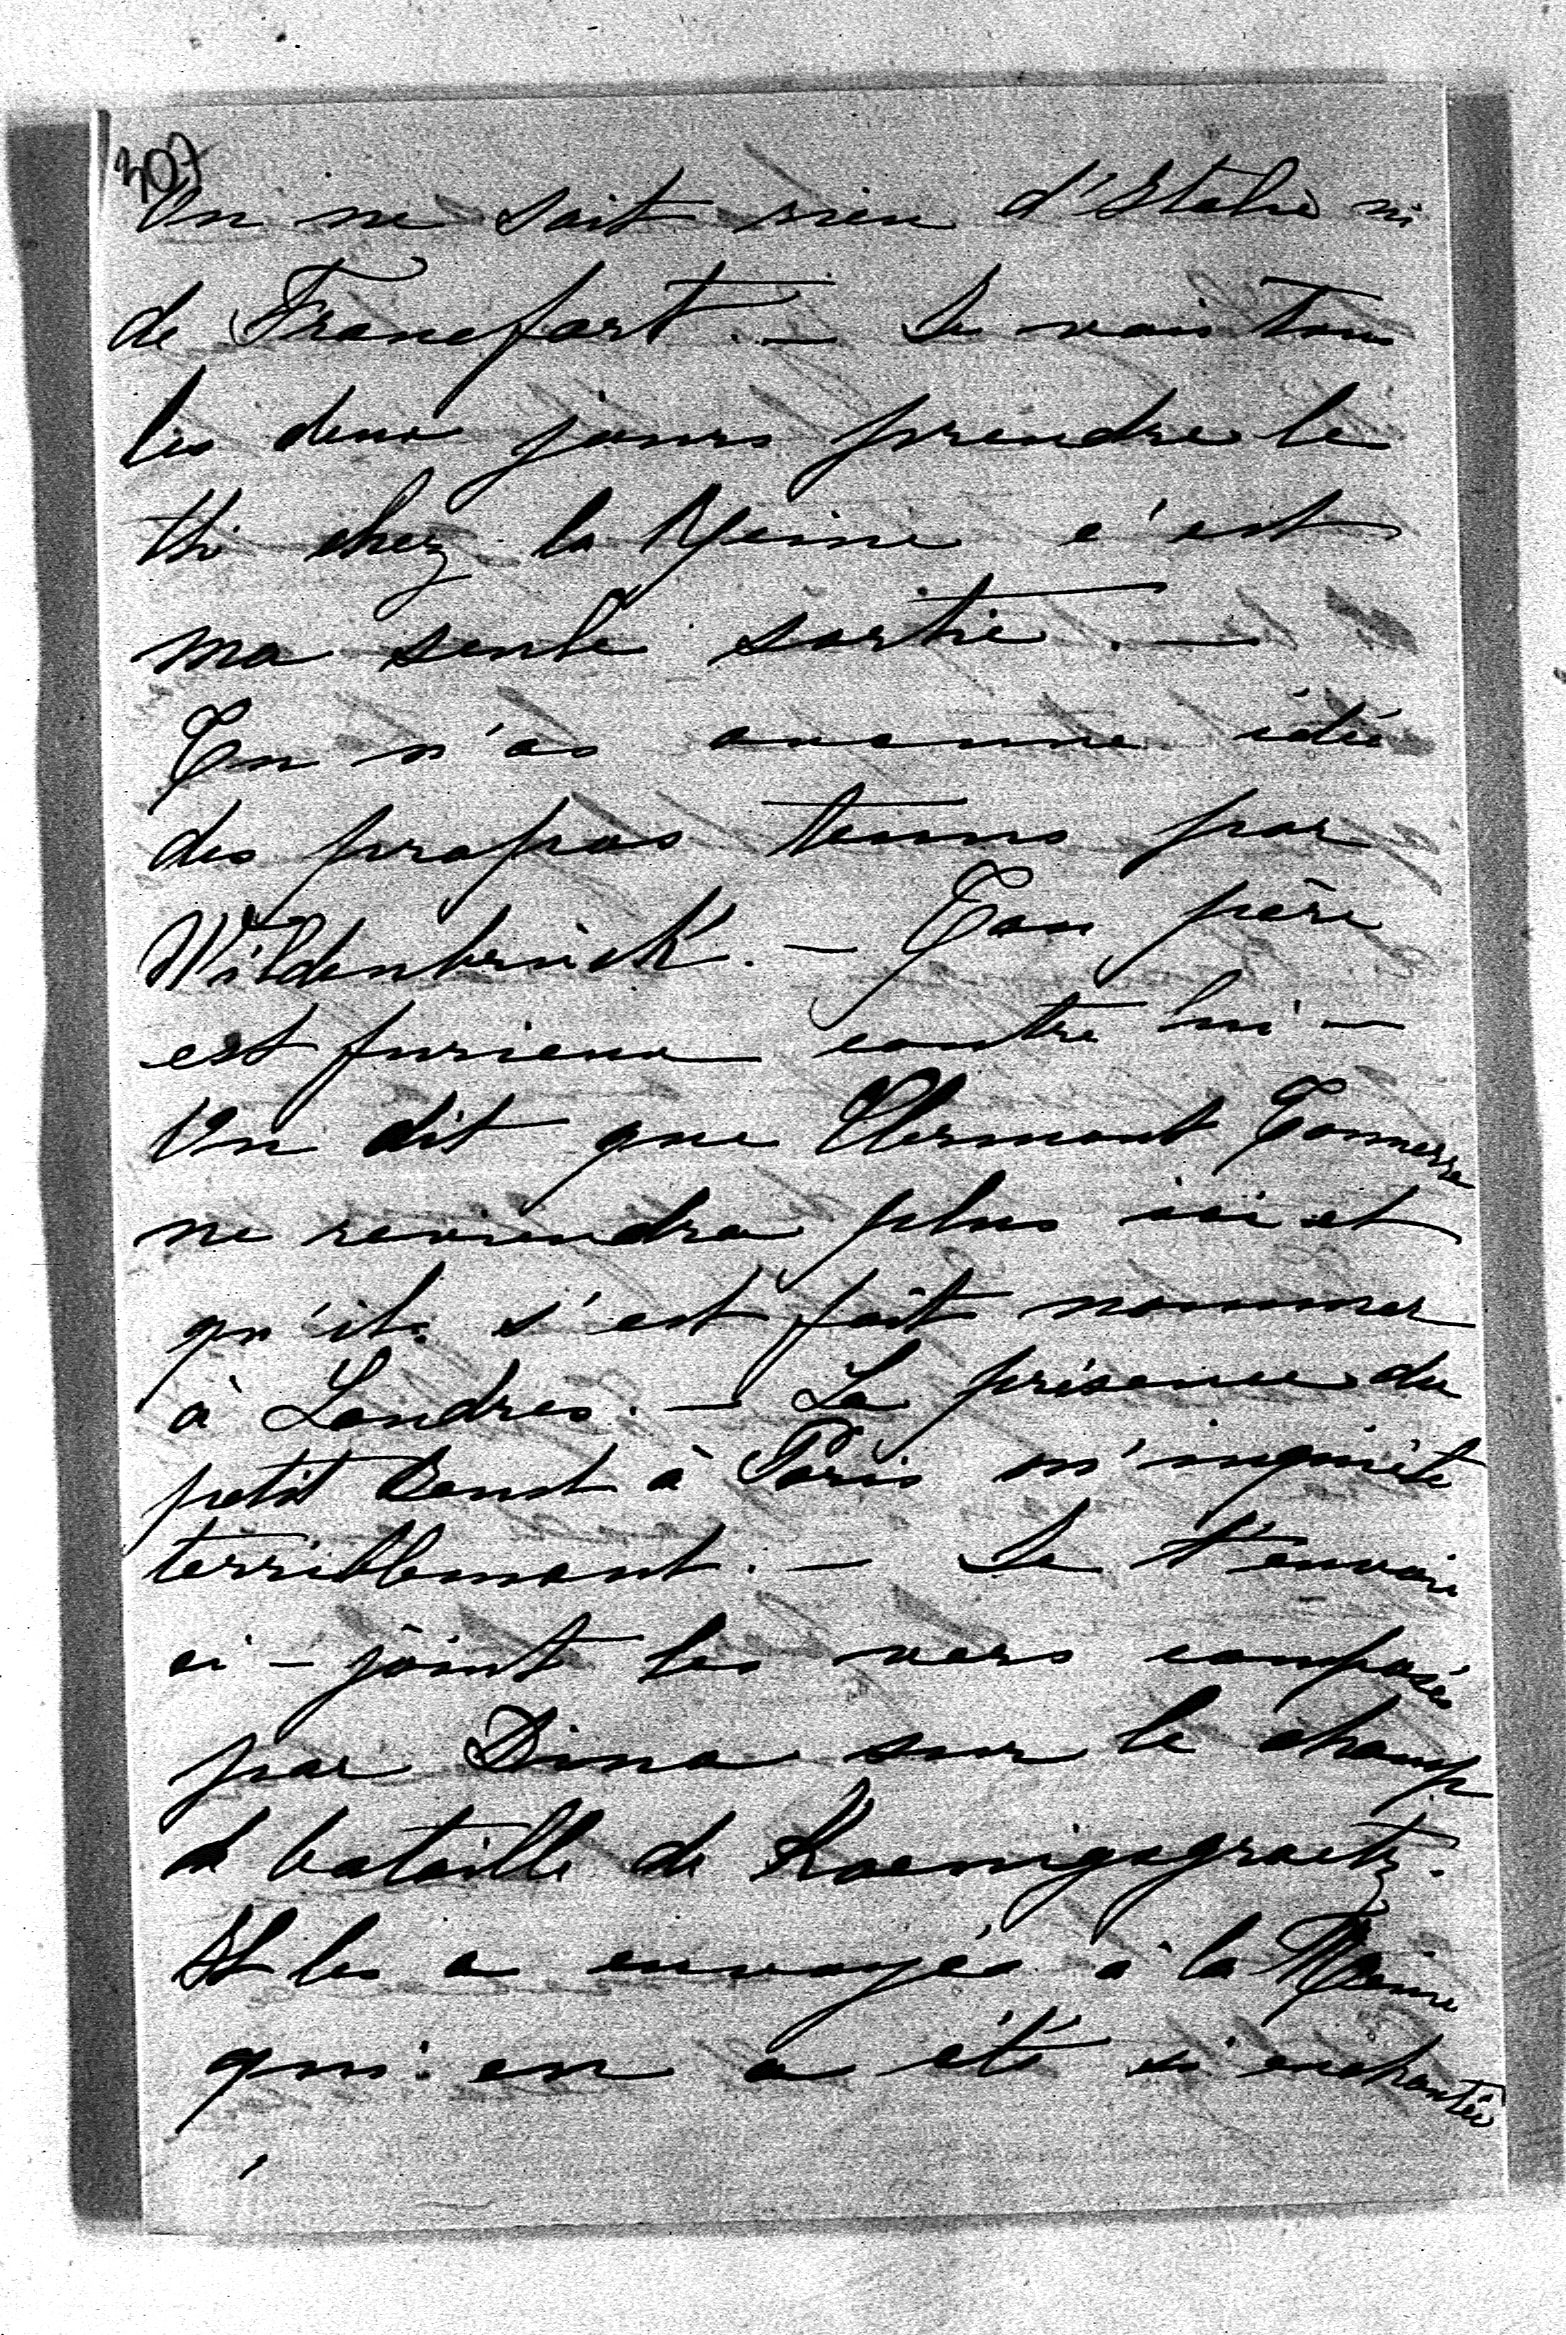 307
On ne sait rien d'Italie ni
de Francfort. — Je vais tous
les deux jours prendre le
thé chez la Reine c'est
ma seule sortie. —
Tu n'as aucune idée
des propos tenus par
Wildenbruck. — Ton père
est furieux contre lui —
On dit que Clermont Tonnerre
ne reviendra plus ici et
qu'il s'est fait nommer
à Londres. — La présence du
petit à Paris m'inquiète
terriblement. — Je t'envoie
ci-joint les vers composés
par Dino sur le champ
de bataille de Koenigsgraetz.
Il les a envoyés à la Reine
qui en a été si enchantée